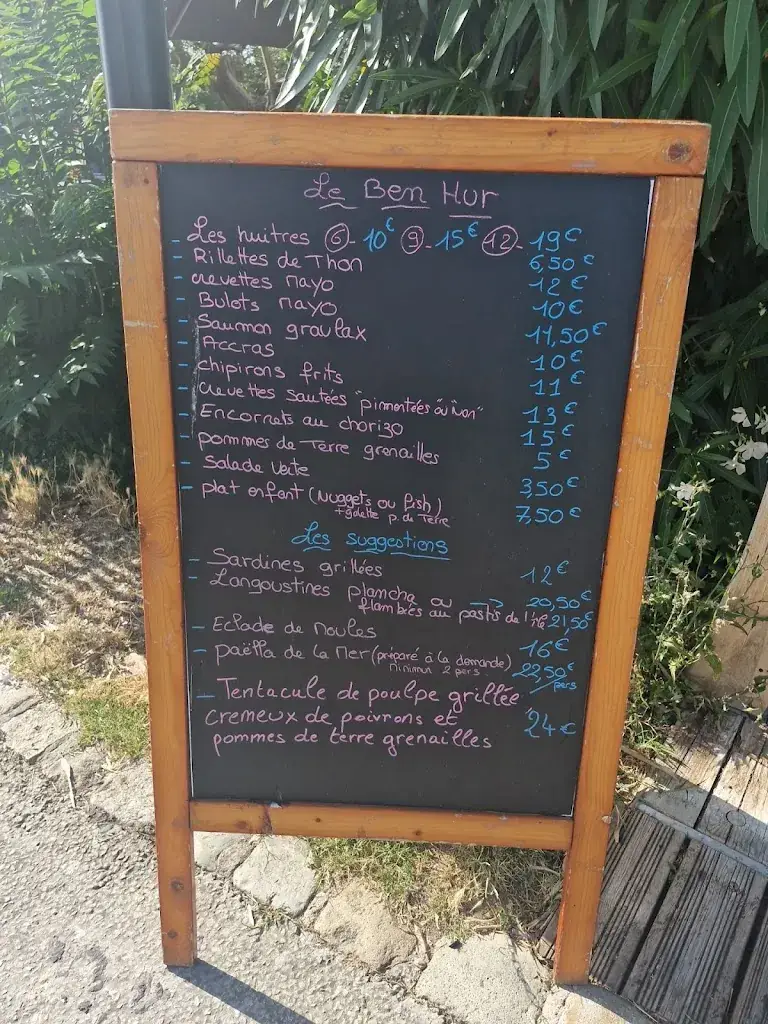 Le Ben Hur
- Les huitres 6 - 10€ 9 - 15€ 12 - 19€
- Rillettes de Thon 6,50€
- crevettes mayo 12€
- Bulots mayo 10€
- Saumon gravlax 11,50€
- Accras 10€
- chipirons frits 11€
- crevettes sautées "pimentées ou non" 13€
- Encornets au chorizo 15€
- pommes de Terre grenailles 5€
- Salade verte 3,50€
- plat enfant (Nuggets ou fish) 7,50€
+ galette p. de Terre
Les suggestions
- Sardines grillées 12€
- Langoustines plancha ou → 20,50€
flambées au pastis de l'île 21,50€
- Eclade de Moules 16€
- paëlla de la Mer (préparé à la demande) 22,50€
minimum 2 pers. /pers
- Tentacule de poulpe grillée
cremeux de poivrons et 24€
pommes de terre grenailles